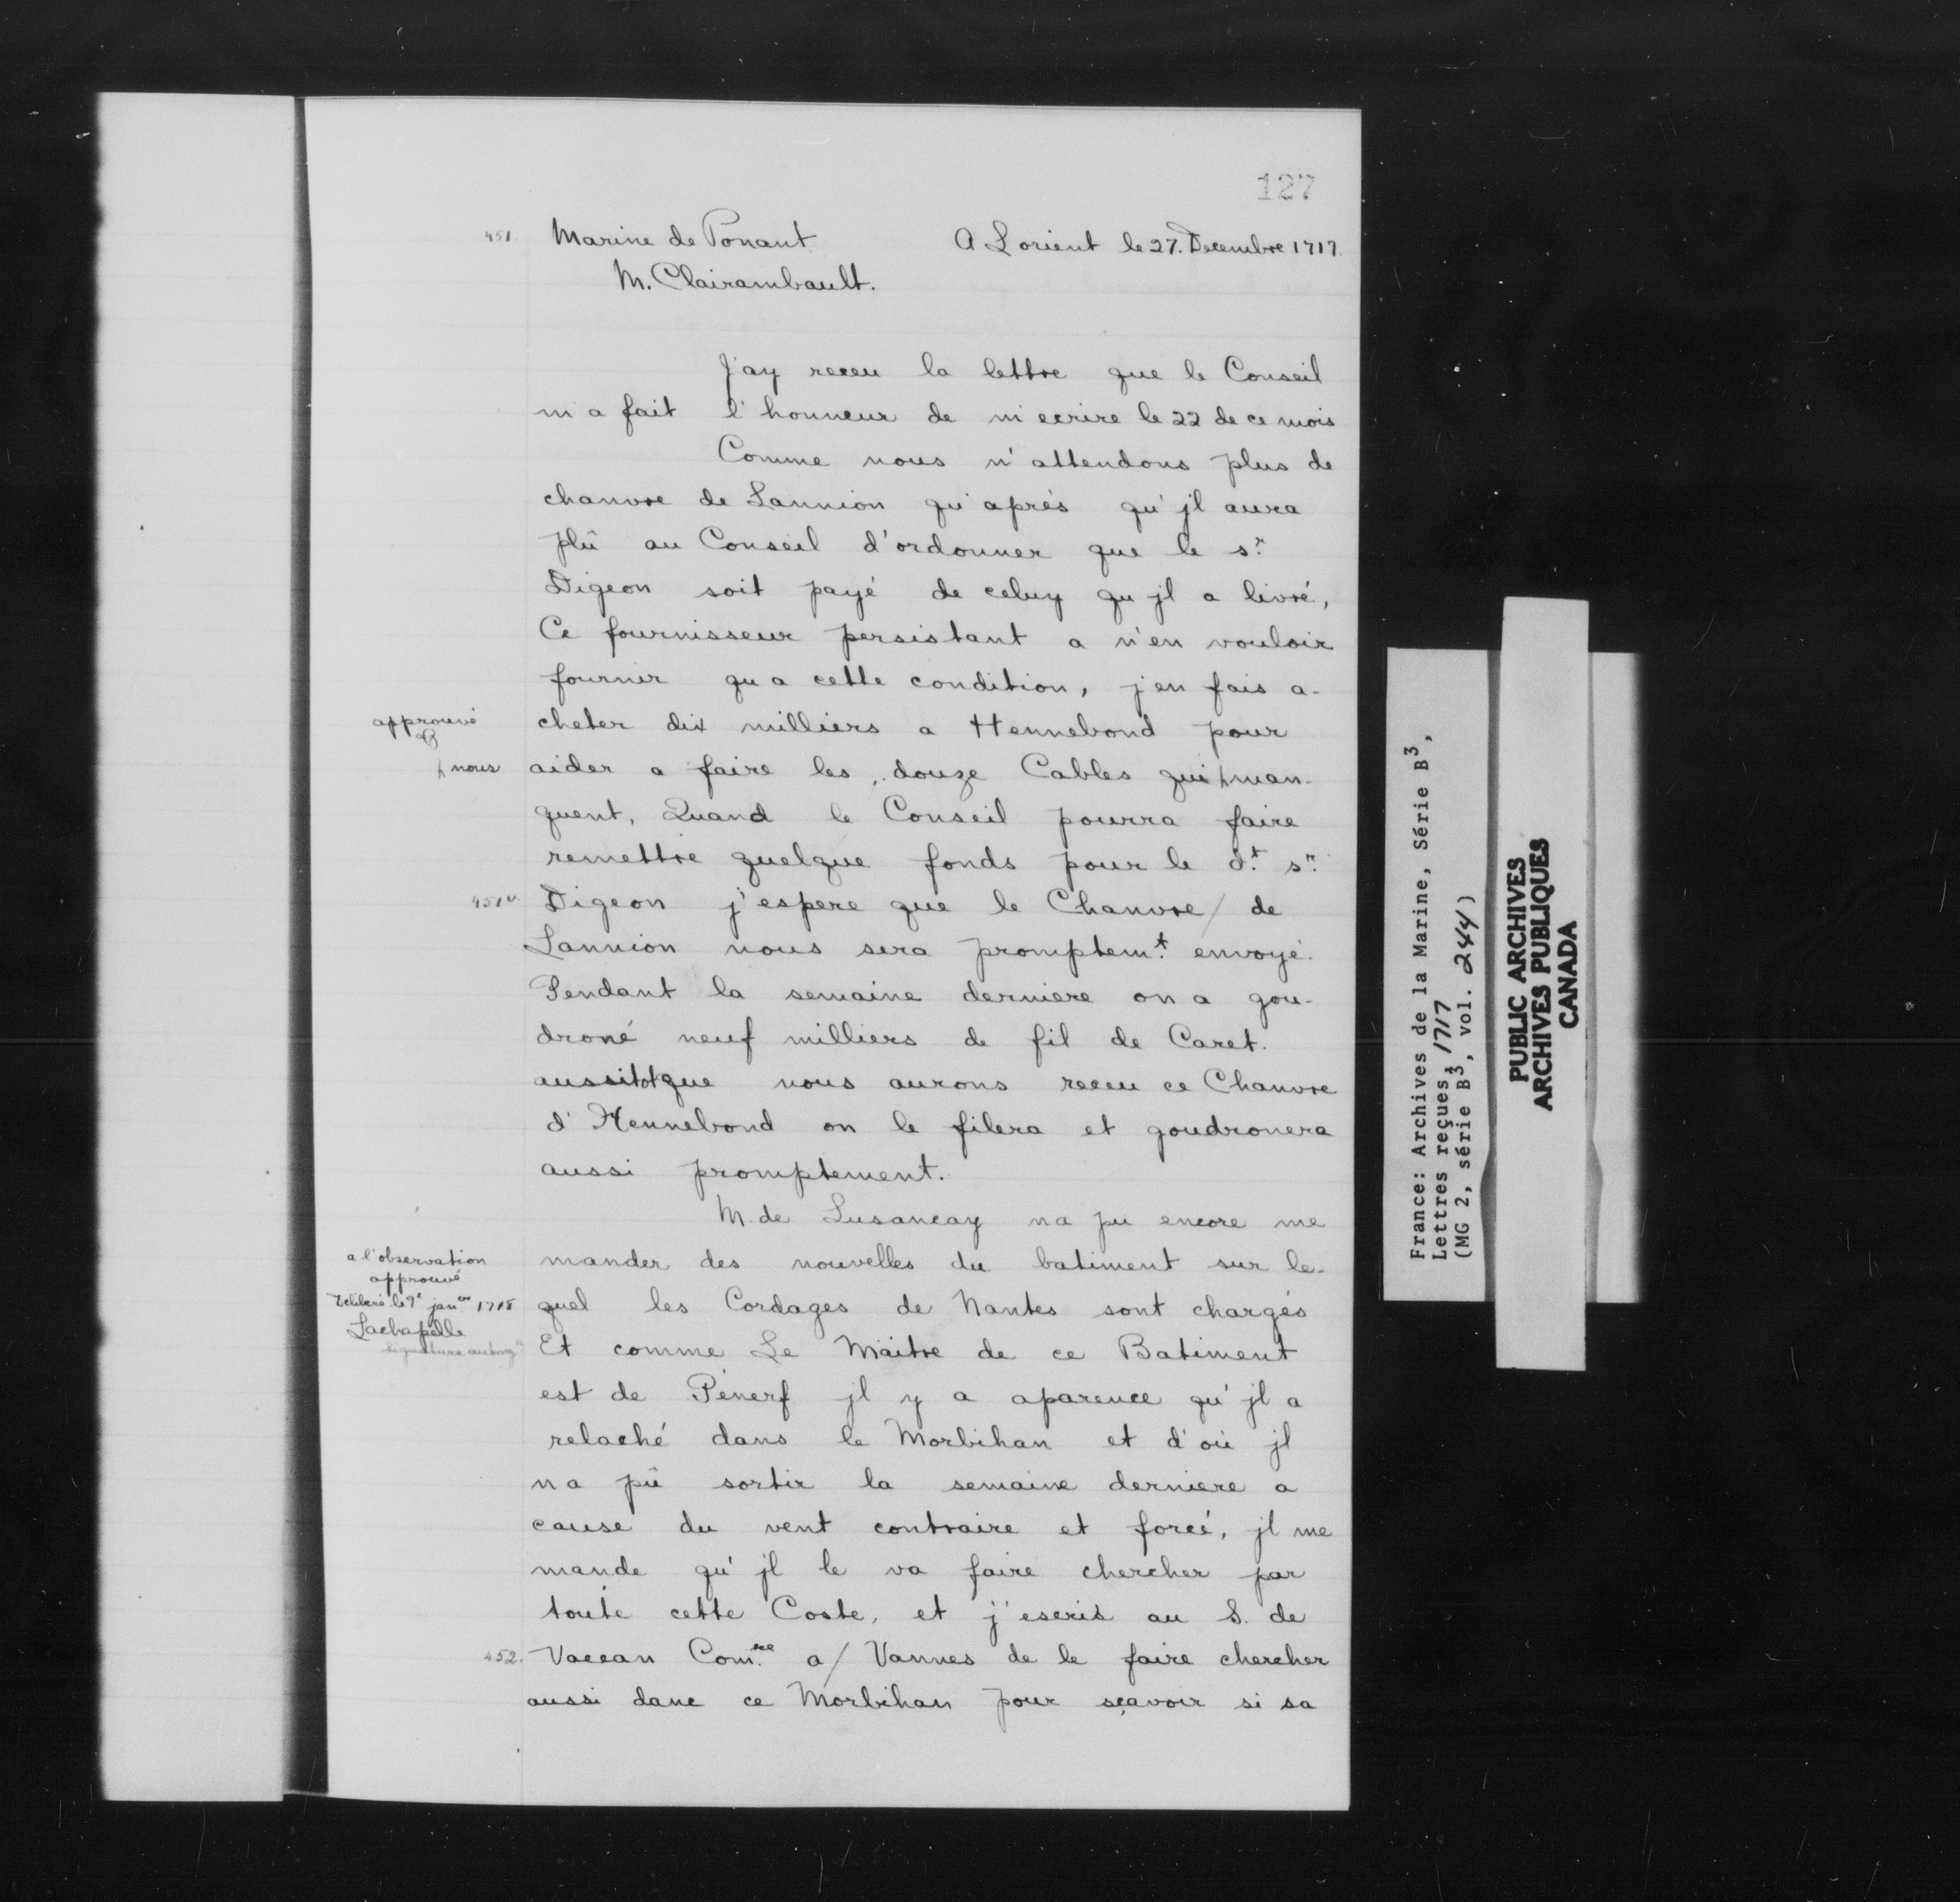 127
451. Marine de Ponant A Lorient le 27. Decembre 1717.
M. Clairambault.
J'ay receu la lettre que le Conseil
m'a fait l'honneur de m'ecrire le 22 de ce mois
Comme nous n'attendons plus de
chanvre de Lannion qu'aprés qu'jl aura
plû au Conseil d'ordonner que le s.r
Digeon soit payé de celuy qu'jl a livré,
Ce fournisseur persistant a n'en vouloir
fournir qu'a cette condition, j'en fais a-
approuvé
cheter dix milliers a Hennebond pour
nous
aider a faire les douze Cables qui man-
quent, Quand le Conseil pourra faire
remettre quelque fonds pour le d.t s.r
451v Digeon j'espere que le Chanvre / de
Lannion nous sera promptem.t envoyé.
Pendant la semaine derniere on a gou-
droné neuf milliers de fil de Caret.
aussitotque nous aurons receu ce Chanvre
d'Hennebond on le filera et goudronera
aussi promptement.
M. de Lusancay na pu encore me
a l'observation
approuvé
Deliberé le 9e jan.er 1718
Lachapelle
signature autog
mander des nouvelles du batiment sur le-
quel les Cordages de Nantes sont chargés
Et comme Le Maitre de ce Batiment
est de Pénerf jl y a aparence qu'jl a
relaché dans le Morbihan et d'où jl
na pû sortir la semaine derniere a
cause du vent contraire et forcé, jl me
mande qu'jl le va faire chercher par
toute cette Coste, et j'escris au S. de
452. Vaccan Com.re a / Vannes de le faire chercher
aussi danc ce Morbihan pour sçavoir si sa
France: Archives de la Marine, Série B3,
Lettres reçues, 1717
(MG 2, série B3, vol. 244)
PUBLIC ARCHIVES
ARCHIVES PUBLIQUES
CANADA